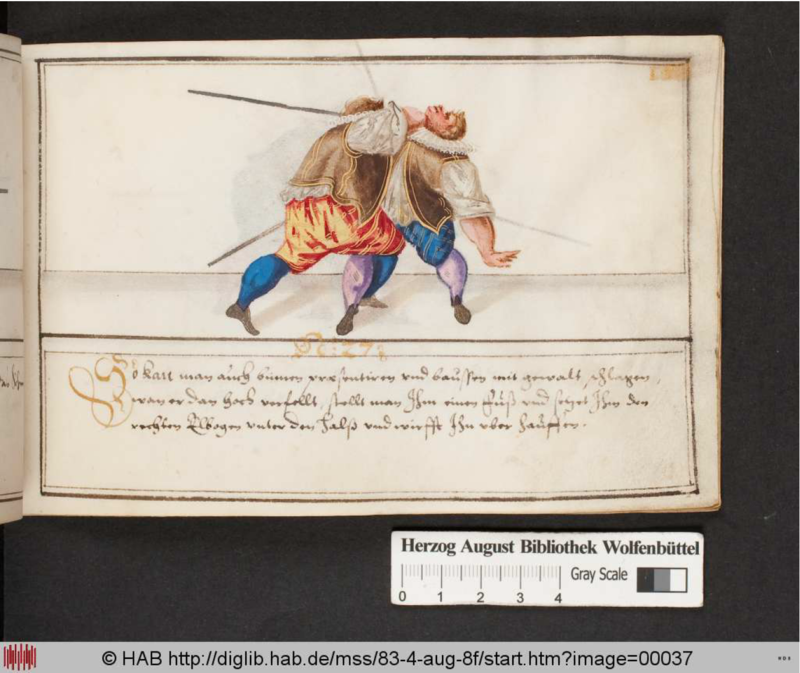 No: 27:
So kan man auch binnen præsentiren vnd baussen mit gewalt schlagen,
wan er dan hoch verfellt, stellt man Ihm einen Fuß vnd setzet Ihm den
rechten Elbogen vnter den Halß vnd wirfft Ihn vber hauffen.
Herzog August Bibliothek Wolfenbüttel
Gray Scale
0 1 2 3 4
© HAB http://diglib.hab.de/mss/83-4-aug-8f/start.htm?image=00037